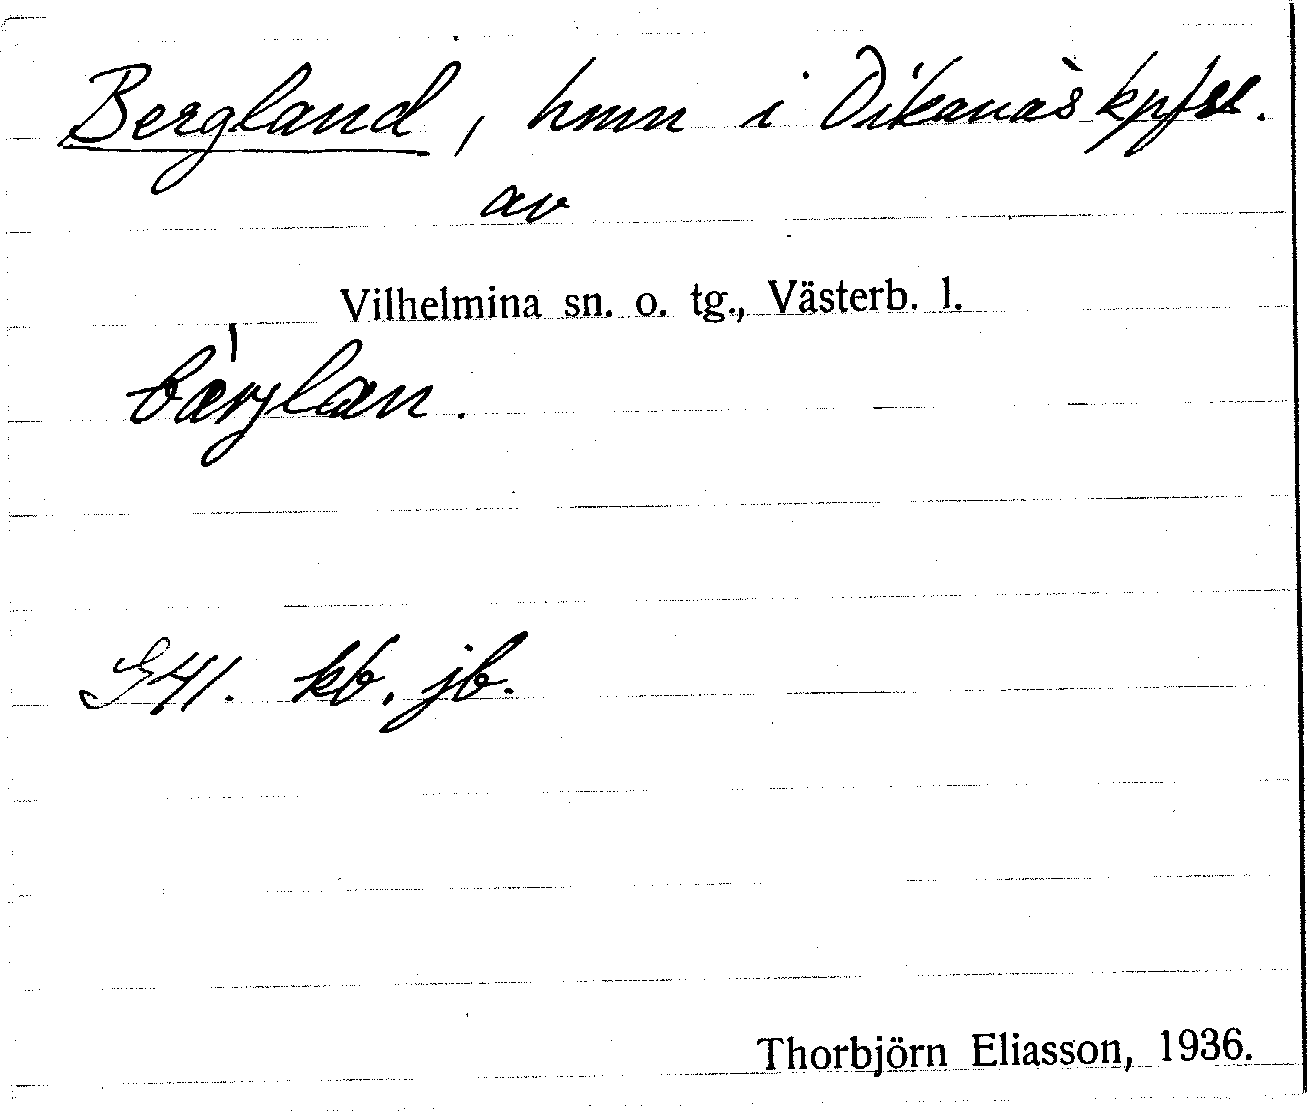 Bergland, hmn i Dikanäs kpfse.
av
Vilhelmina sn. o. tg., Västerb. l.
bærjlan.
G41. kb. jb.
Thorbjörn Eliasson, 1936.